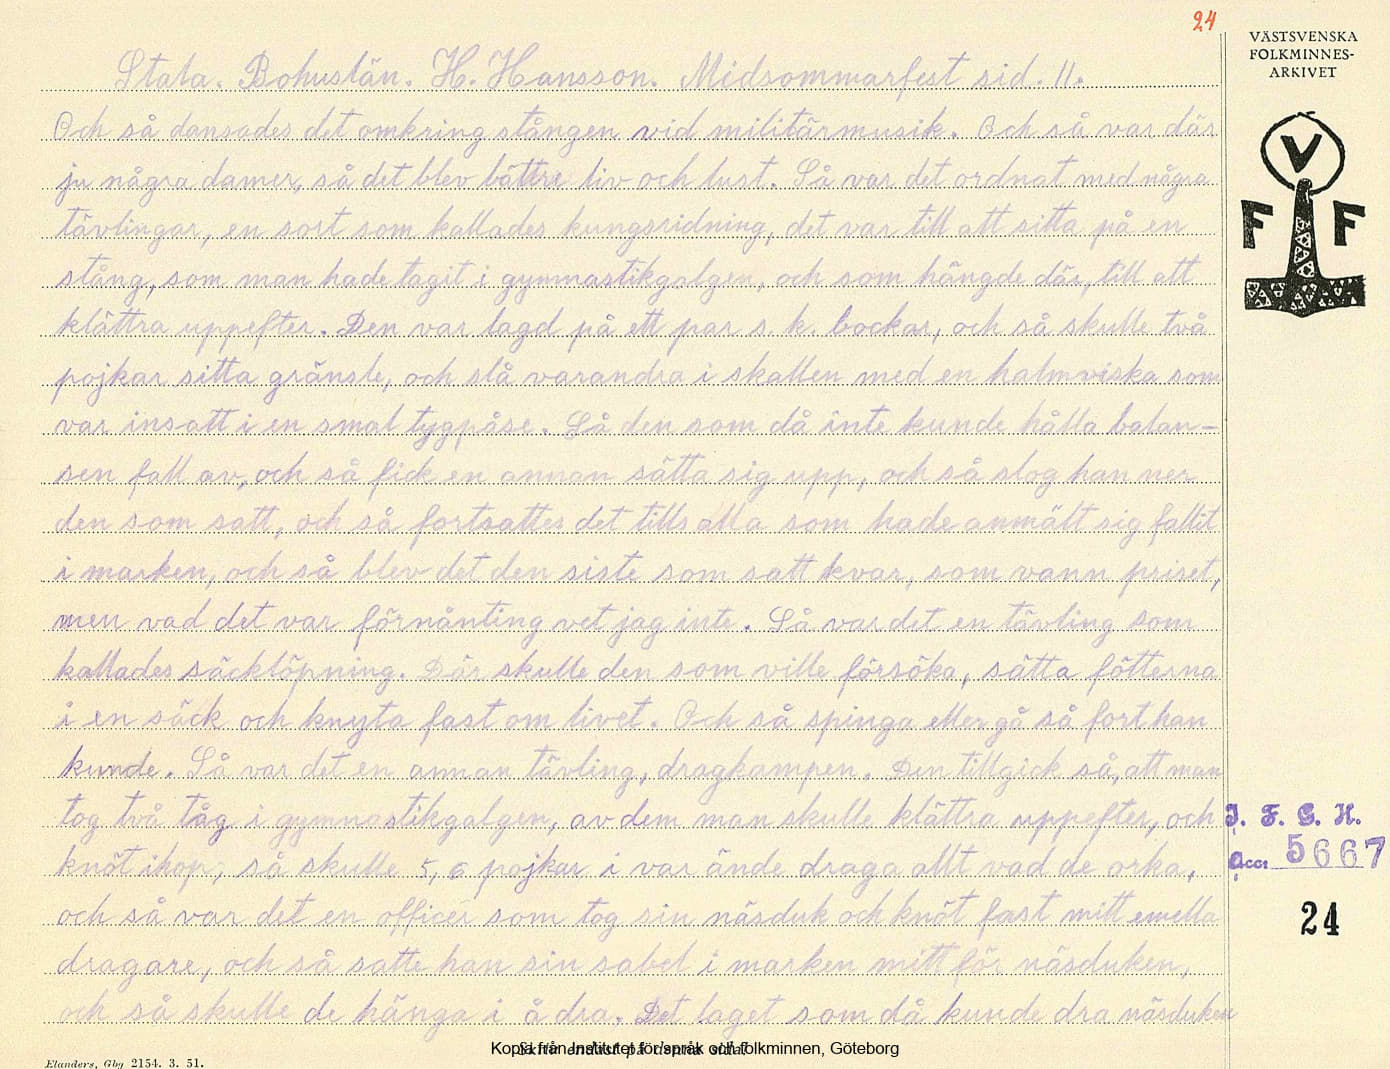 24
VÄSTSVENSKA
FOLKMINNES-
ARKIVET
V
F F
Stala. Bohuslän. H. Hansson. Midsommarfest sid. 11.
Och så dansades det omkring stången vid militärmusik. Och så var där
ju några damer, så det blev bättre liv och lust. Så var det ordnat med några
tävlingar, en sort som kallades kungsridning, det var till att sitta på en
stång, som man hade tagit i gymnastikgalgen, och som hängde där, till att
klättra uppefter. Den var lagd på ett par s. k. bockar, och så skulle två
pojkar sitta gränsle, och slå varandra i skallen med en halmviska som
var insatt i en smal tygpåse. Så den som då inte kunde hålla balan-
sen fall av, och så fick en annan sätta sig upp, och så slog han ner
den som satt, och så fortsattes det tills alla som hade anmält sig fallit
i marken, och så blev det den siste som satt kvar, som vann priset,
men vad det var förnånting vet jag inte. Så var det en tävling som
kallades säcklöpning. Där skulle den som ville försöka, sätta fötterna
i en säck och knyta fast om livet. Och så spinga eller gå så fort han
kunde. Så var det en annan tävling, dragkampen. Den tillgick så, att man
tog två tåg i gymnastikgalgen, av dem man skulle klättra uppefter, och
knöt ihop, så skulle 5, 6 pojkar i var ände draga allt vad de orka,
och så var det en officer som tog sin näsduk och knöt fast mitt emella
dragare, och så satte han sin sabel i marken mitt för näsduken,
och så skulle de hänga i å dra. Det laget som då kunde dra näsduken
I. F. G. H.
acc. 5667
24
Skriv endast på denna sida!
Kopia från Institutet för språk och folkminnen, Göteborg
Elanders, Gbg 2154. 3. 51.